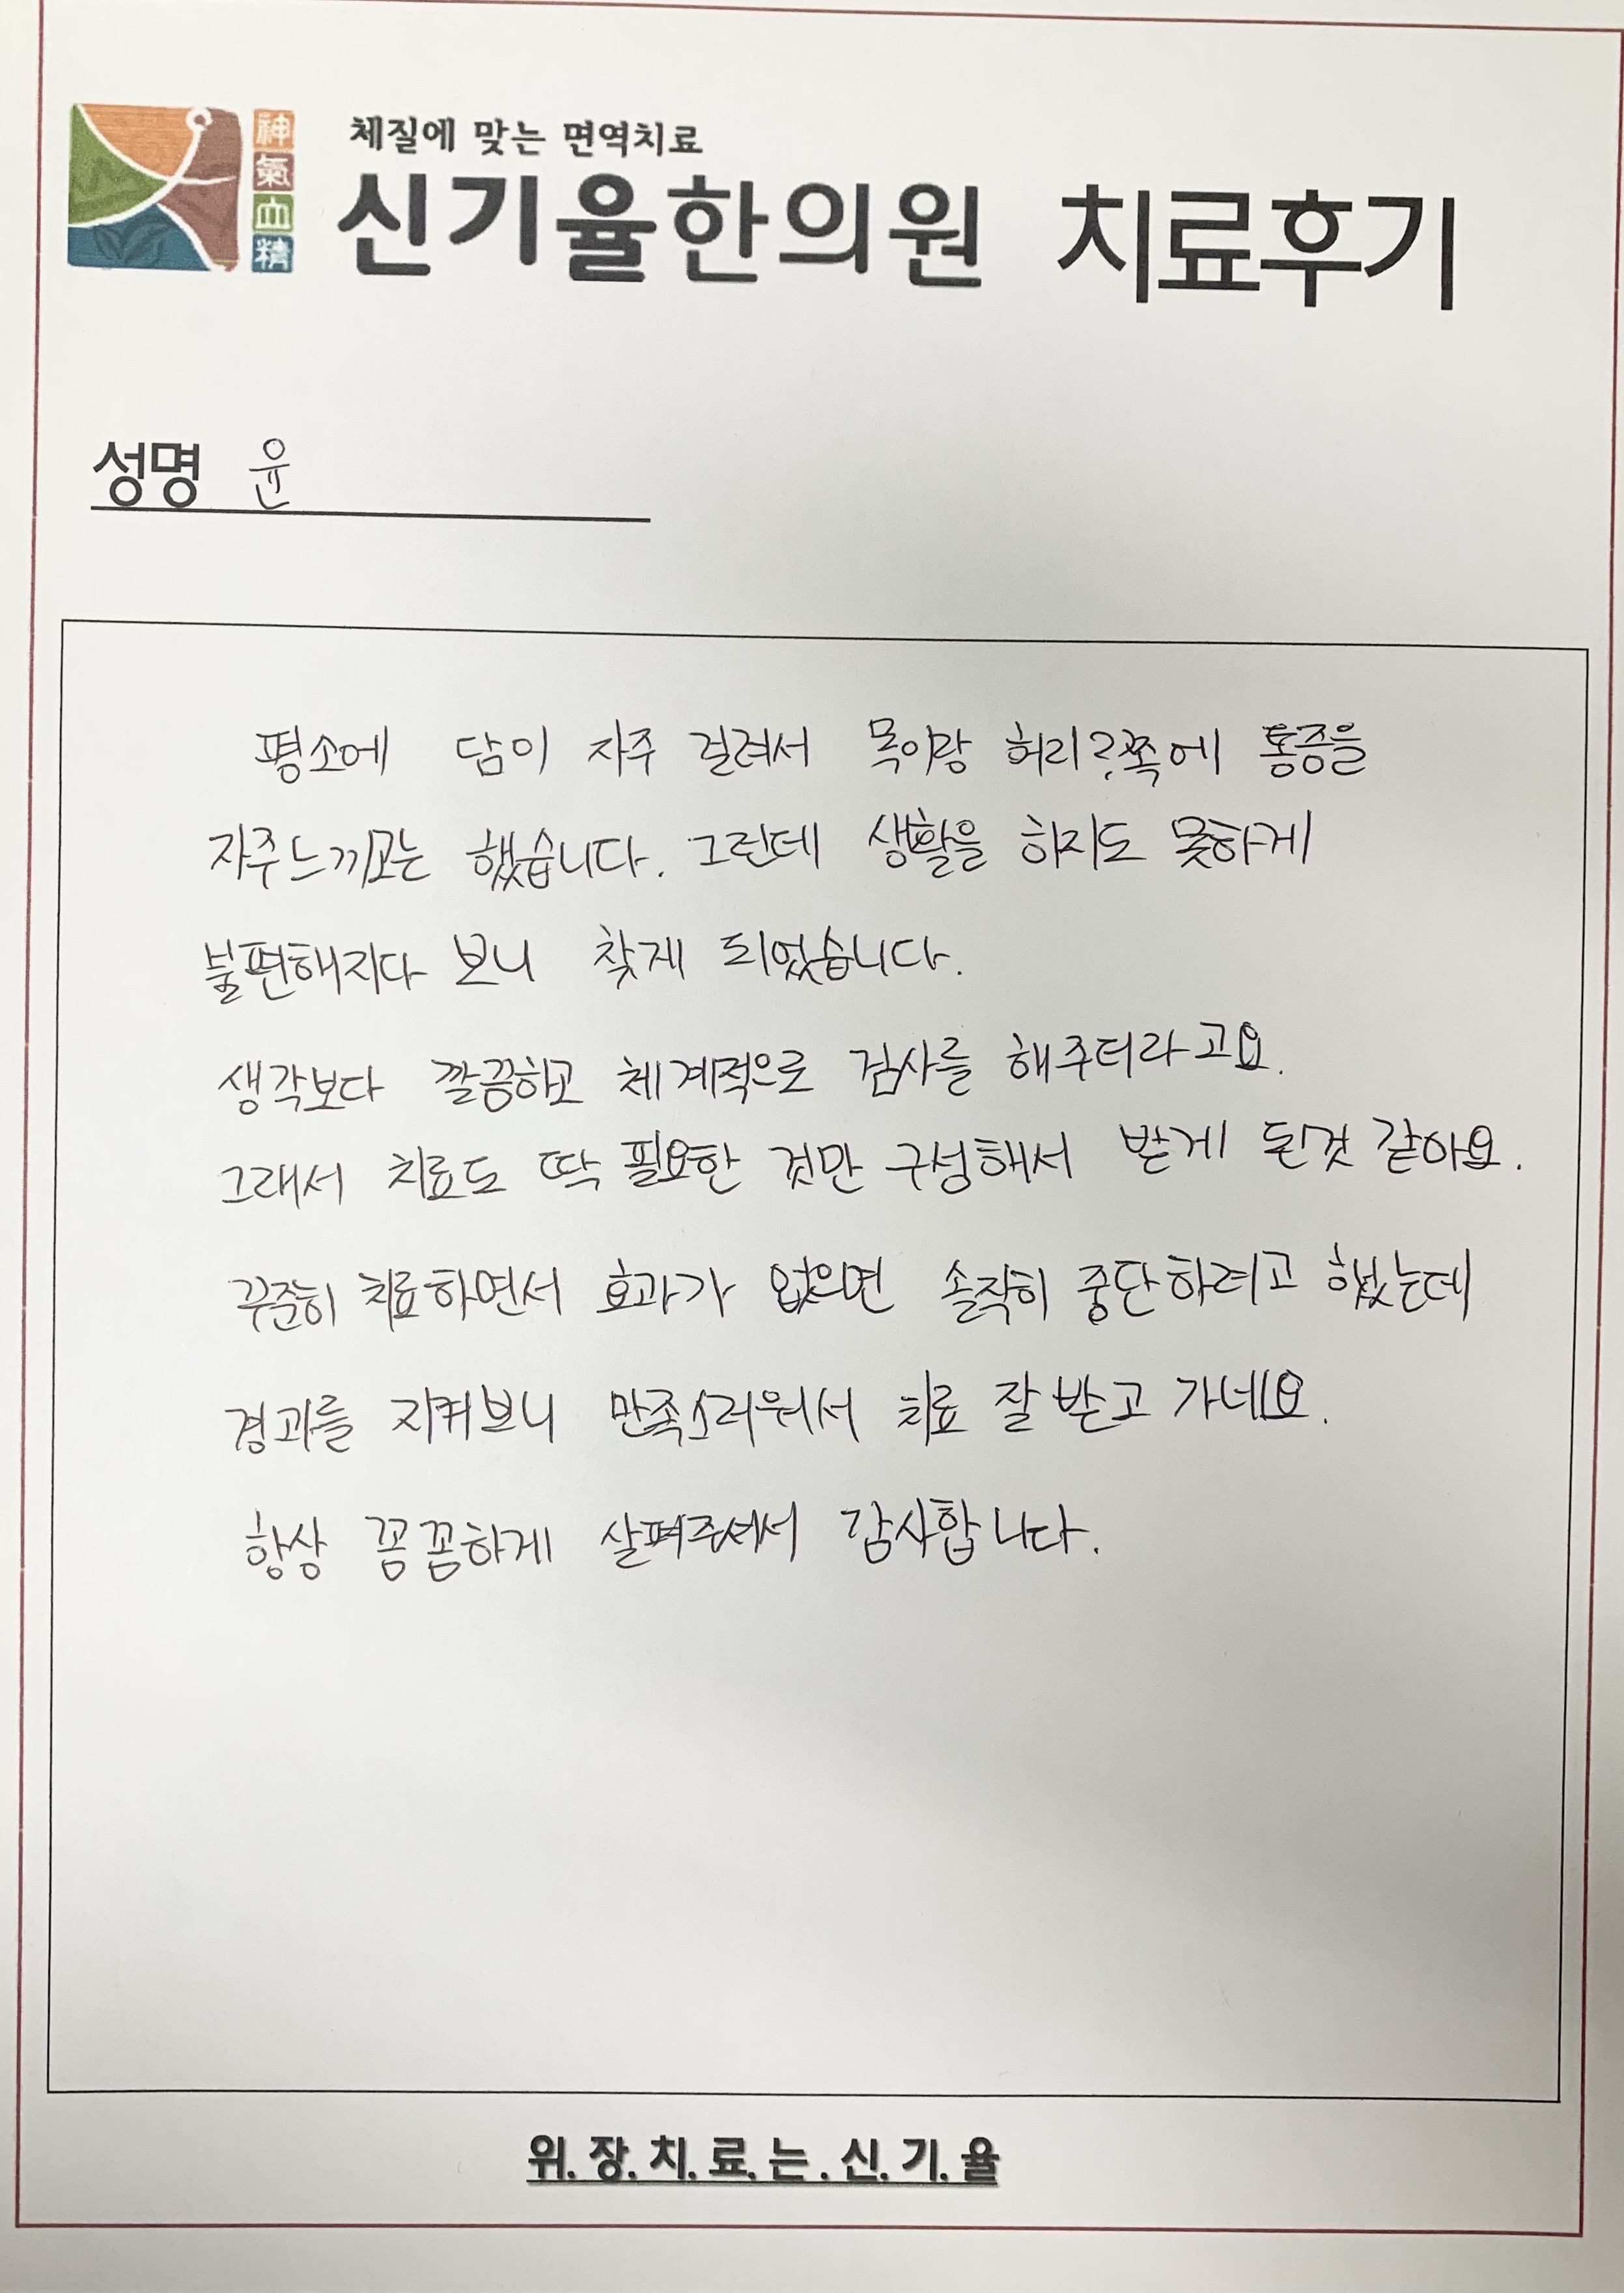 체질에 맞는 면역치료
神氣血精
신기율한의원 치료후기
성명 윤
평소에 담이 자주 걸려서 목이랑 허리?쪽에 통증을
자주느끼고는 했습니다. 그런데 생활을 하지도 못하게
불편해지다 보니 찾게 되었습니다.
생각보다 깔끔하고 체계적으로 검사를 해주더라고요.
그래서 치료도 딱 필요한 것만 구성해서 받게 된것 같아요.
꾸준히 치료하면서 효과가 없으면 솔직히 중단하려고 했는데
경과를 지켜보니 만족스러워서 치료 잘 받고 가네요.
항상 꼼꼼하게 살펴주셔서 감사합니다.
위.장.치.료.는.신.기.율